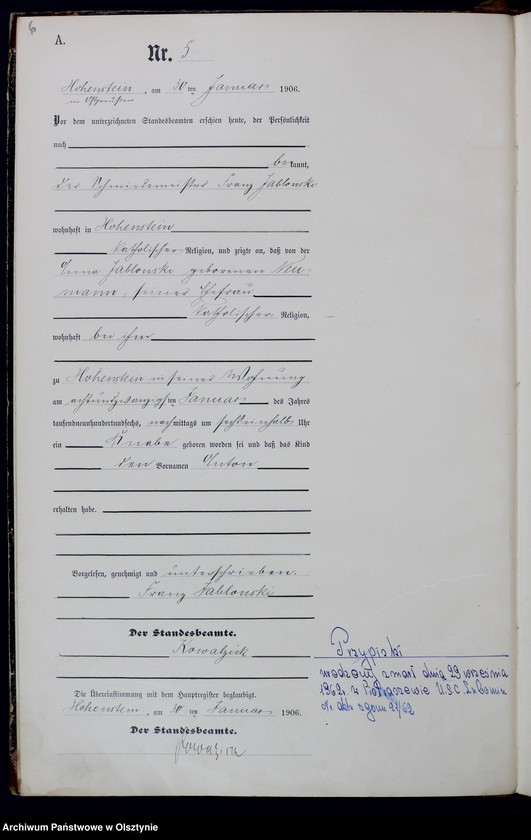 A.
Nr. 5
Hohenstein, am 30ten Januar 1906.
in Ostpreussen
Vor dem unterzeichneten Standesbeamten erschien heute, der Persönlichkeit
nach
bekannt,
der Schmiedemeister Franz Jablonski
wohnhaft in Hohenstein
katholischer Religion, und zeigte an, daß von der
Anna Jablonski geborenen Neu-
mann, seiner Ehefrau
katholischer Religion,
wohnhaft bei ihm
zu Hohenstein in seiner Wohnung
am achtundzwanzigsten Januar des Jahres
tausendneunhundertundsechs, nachmittags um sechseinhalb Uhr
ein Knabe geboren worden sei und daß das Kind
den Vornamen Anton
erhalten habe.
Vorgelesen, genehmigt und unterschrieben.
Franz Jablonski
Der Standesbeamte.
Kowalzick
Die Übereinstimmung mit dem Hauptregister beglaubigt.
Hohenstein, am 30ten Januar 1906.
Der Standesbeamte.
Kowalzick
Przypiski
wodzony zmarł dnia 29 września
1962 r. w USC
Nr. aktu zgonu 21/62
Archiwum Państwowe w Olsztynie